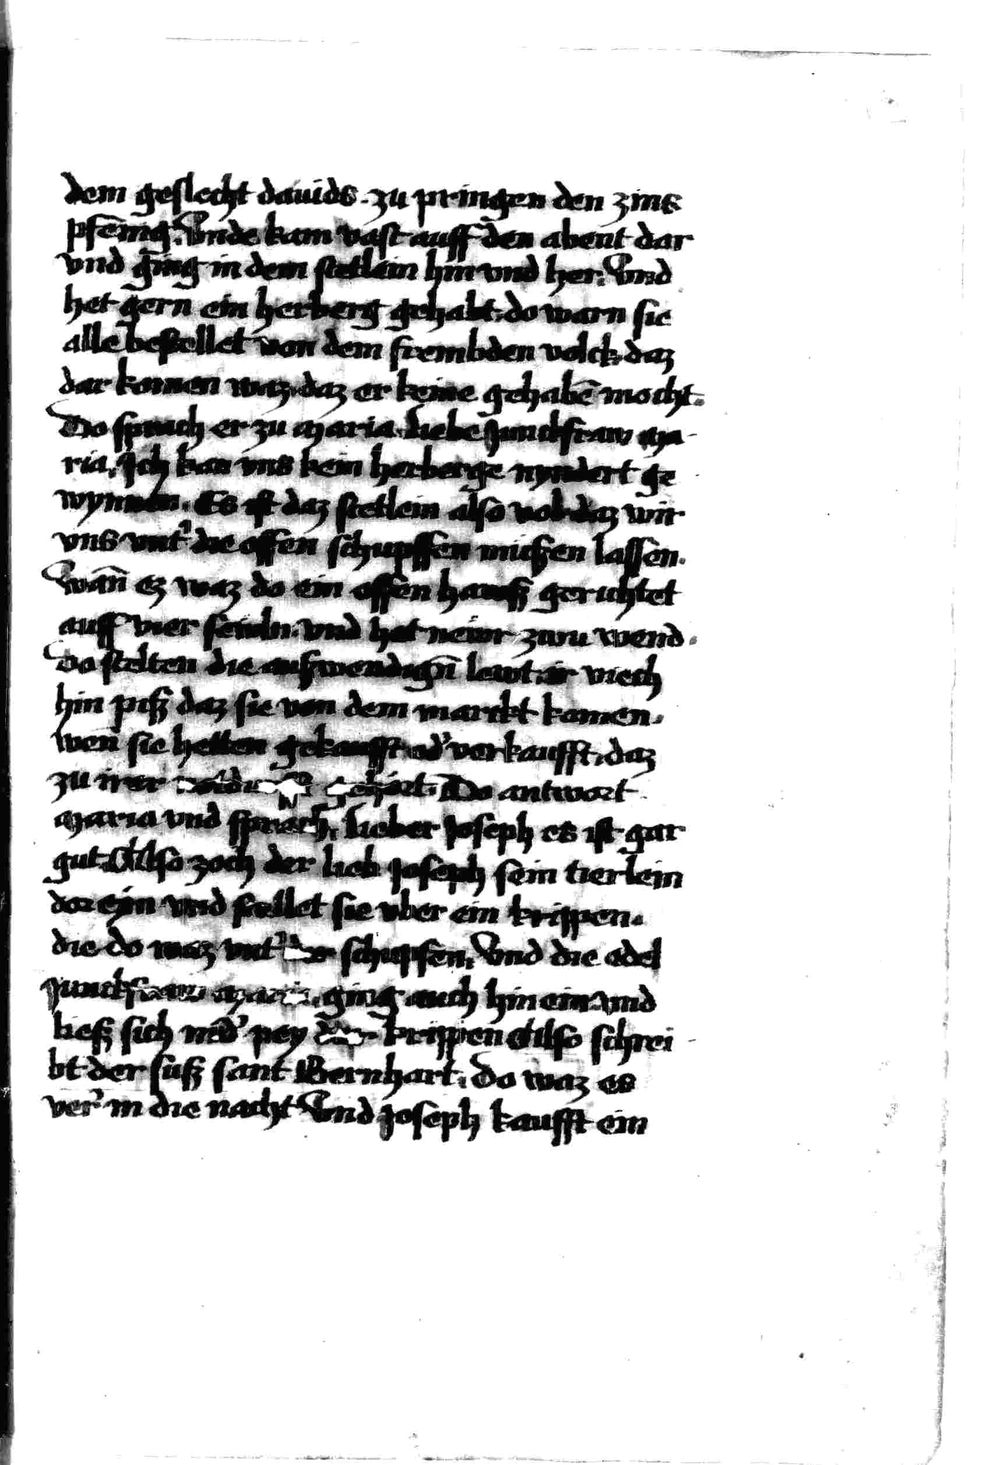 dem geslecht dauids. zu pringen den zins
pfēnig. Vnde kam vast auff den abent dar
vnd ging in dem stetlein hin vnd her. Vnd
het gern ein herberg gehabt. do warn sie
alle bestellet von dem frembden volck. daz
dar komen waz. daz er keine gehabē mocht.
Do sprach er zu maria. liebe Junckfraw ma-
ria. Ich kan vns kein herberge nyndert ge
wynnen. Es ist daz stetlein also vol. daz wir
vns vnt' die offen schupffen mußen lassen.
Wān ez waz do ein offen hauß gerichtet
auff vier seuln. vnd het newr zwu wend.
Do stelten die außwendigē lewt ir viech
hin piß daz sie von dem marckt komen.
wen sie hetten gekaufft od' verkaufft. daz
zu irer gehort. Do antwort
maria vnd sprach. lieber Joseph es ist gar
gut. Also zoch der lieb Joseph sein tierlein
dor eyn vnd stellet sie vber ein krippen.
die do waz vnt' der schupfen. Vnd die edel
Junckfraw maria. ging auch hin ein. vnd
ließ sich nid' pey der krippen Also schrei
bt der suß sant Bernhart. Do waz es
ver' in die nacht Vnd Joseph kaufft ein